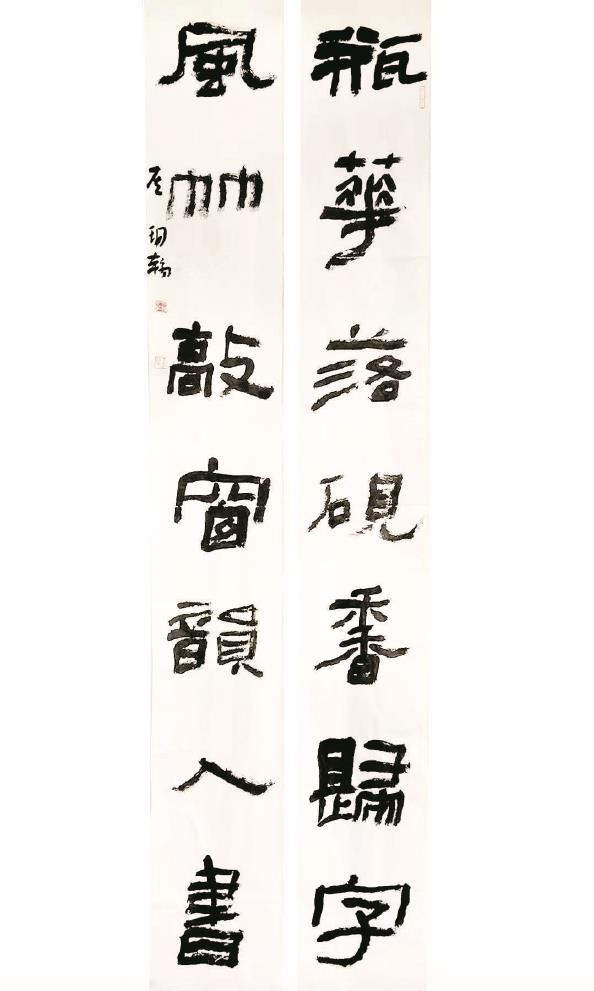 瓶華落硯香歸字
風竹敲窗韻入書